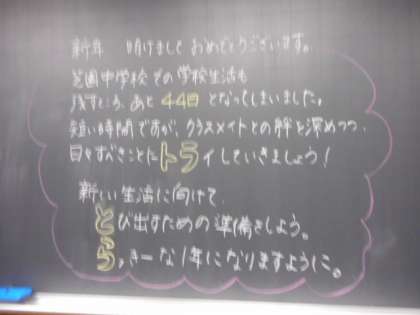 新年 明けましておめでとうございます。
芝園中学校での学校生活も
残すところ、あと44日となってしまいました。
短い時間ですが、クラスメイトとの絆を深めつつ、
日々すべきことにトライしていきましょう！
新しい生活に向けて、
とび出すための準備をしよう。
らっきーな1年になりますように。